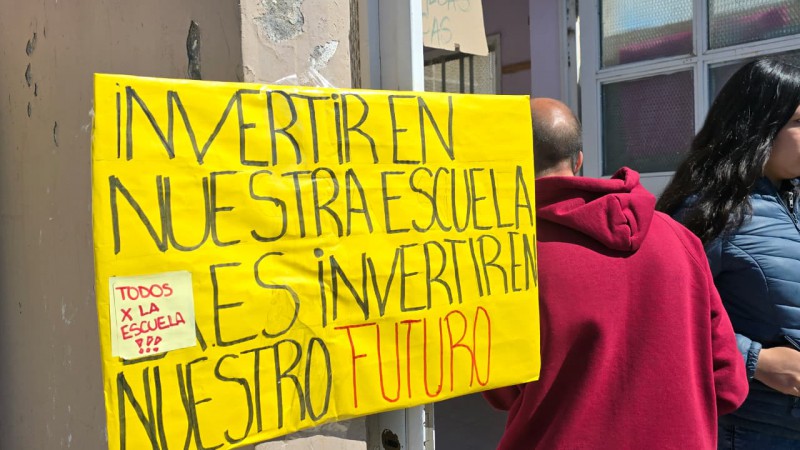 iNVERTiR EN
NUESTRA ESCUELA
ES iNVERTiR EN
NUESTRO FUTURO
TODOS
X LA
ESCUELA
!!!